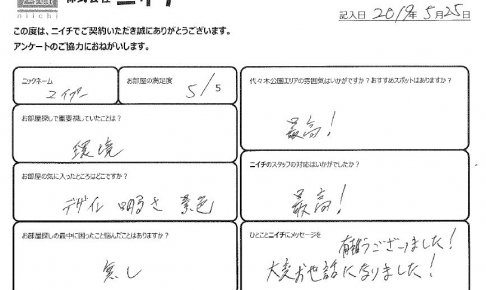 株式会社ニイチ
niichi
記入日 2019年5月25日
この度は、ニイチでご契約いただき誠にありがとうございます。
アンケートのご協力におねがいします。
ニックネーム
エイブー
お部屋の満足度
5/5
お部屋探しで重要視していたことは？
環境
お部屋の気に入ったところはどこですか？
デザイン 明るさ 景色
お部屋探しの最中に困ったこと悩んだことはありますか？
無し
代々木公園エリアの雰囲気はいかがですか？おすすめスポットはありますか？
最高！
ニイチのスタッフの対応はいかがでしたか？
最高！
ひとことニイチにメッセージを
有難うございました！
大変お世話になりました！